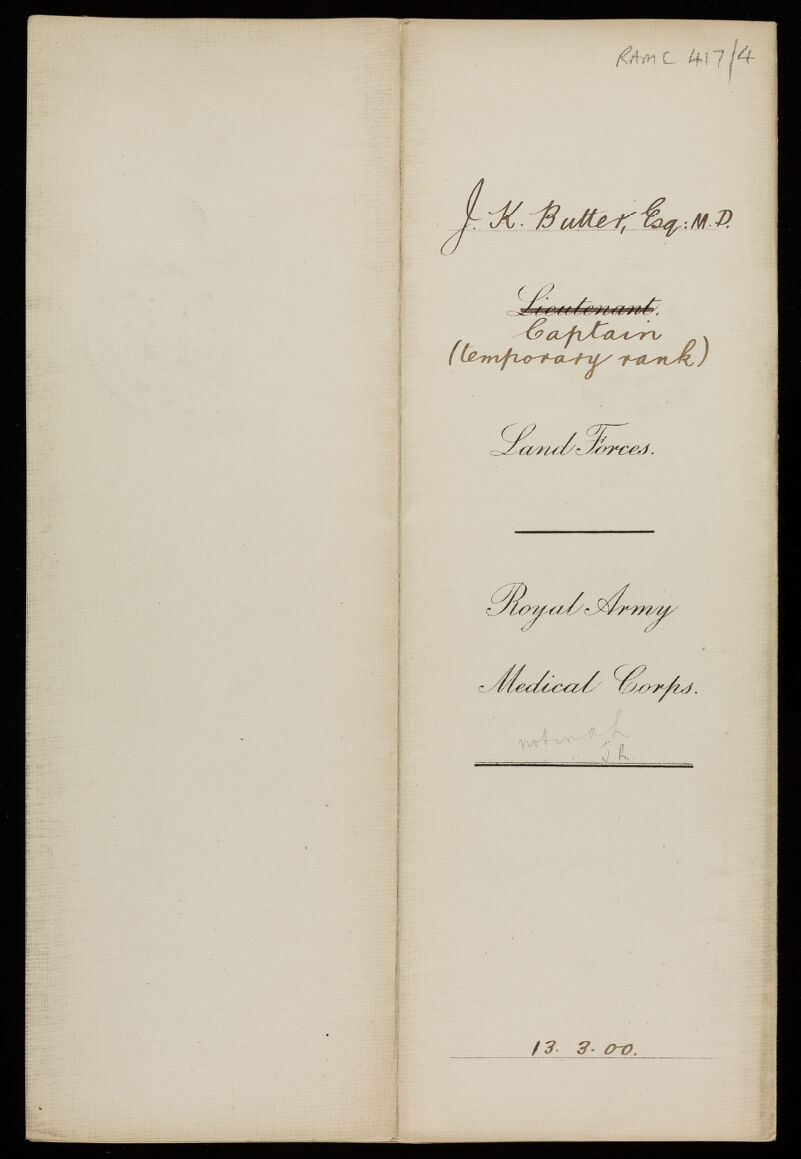 RAMC 417/4
J. K. Butter, Esq: M.D.
Lieutenant.
Captain
(temporary rank)
Land Forces.
Royal Army
Medical Corps.
13. 3. 00.